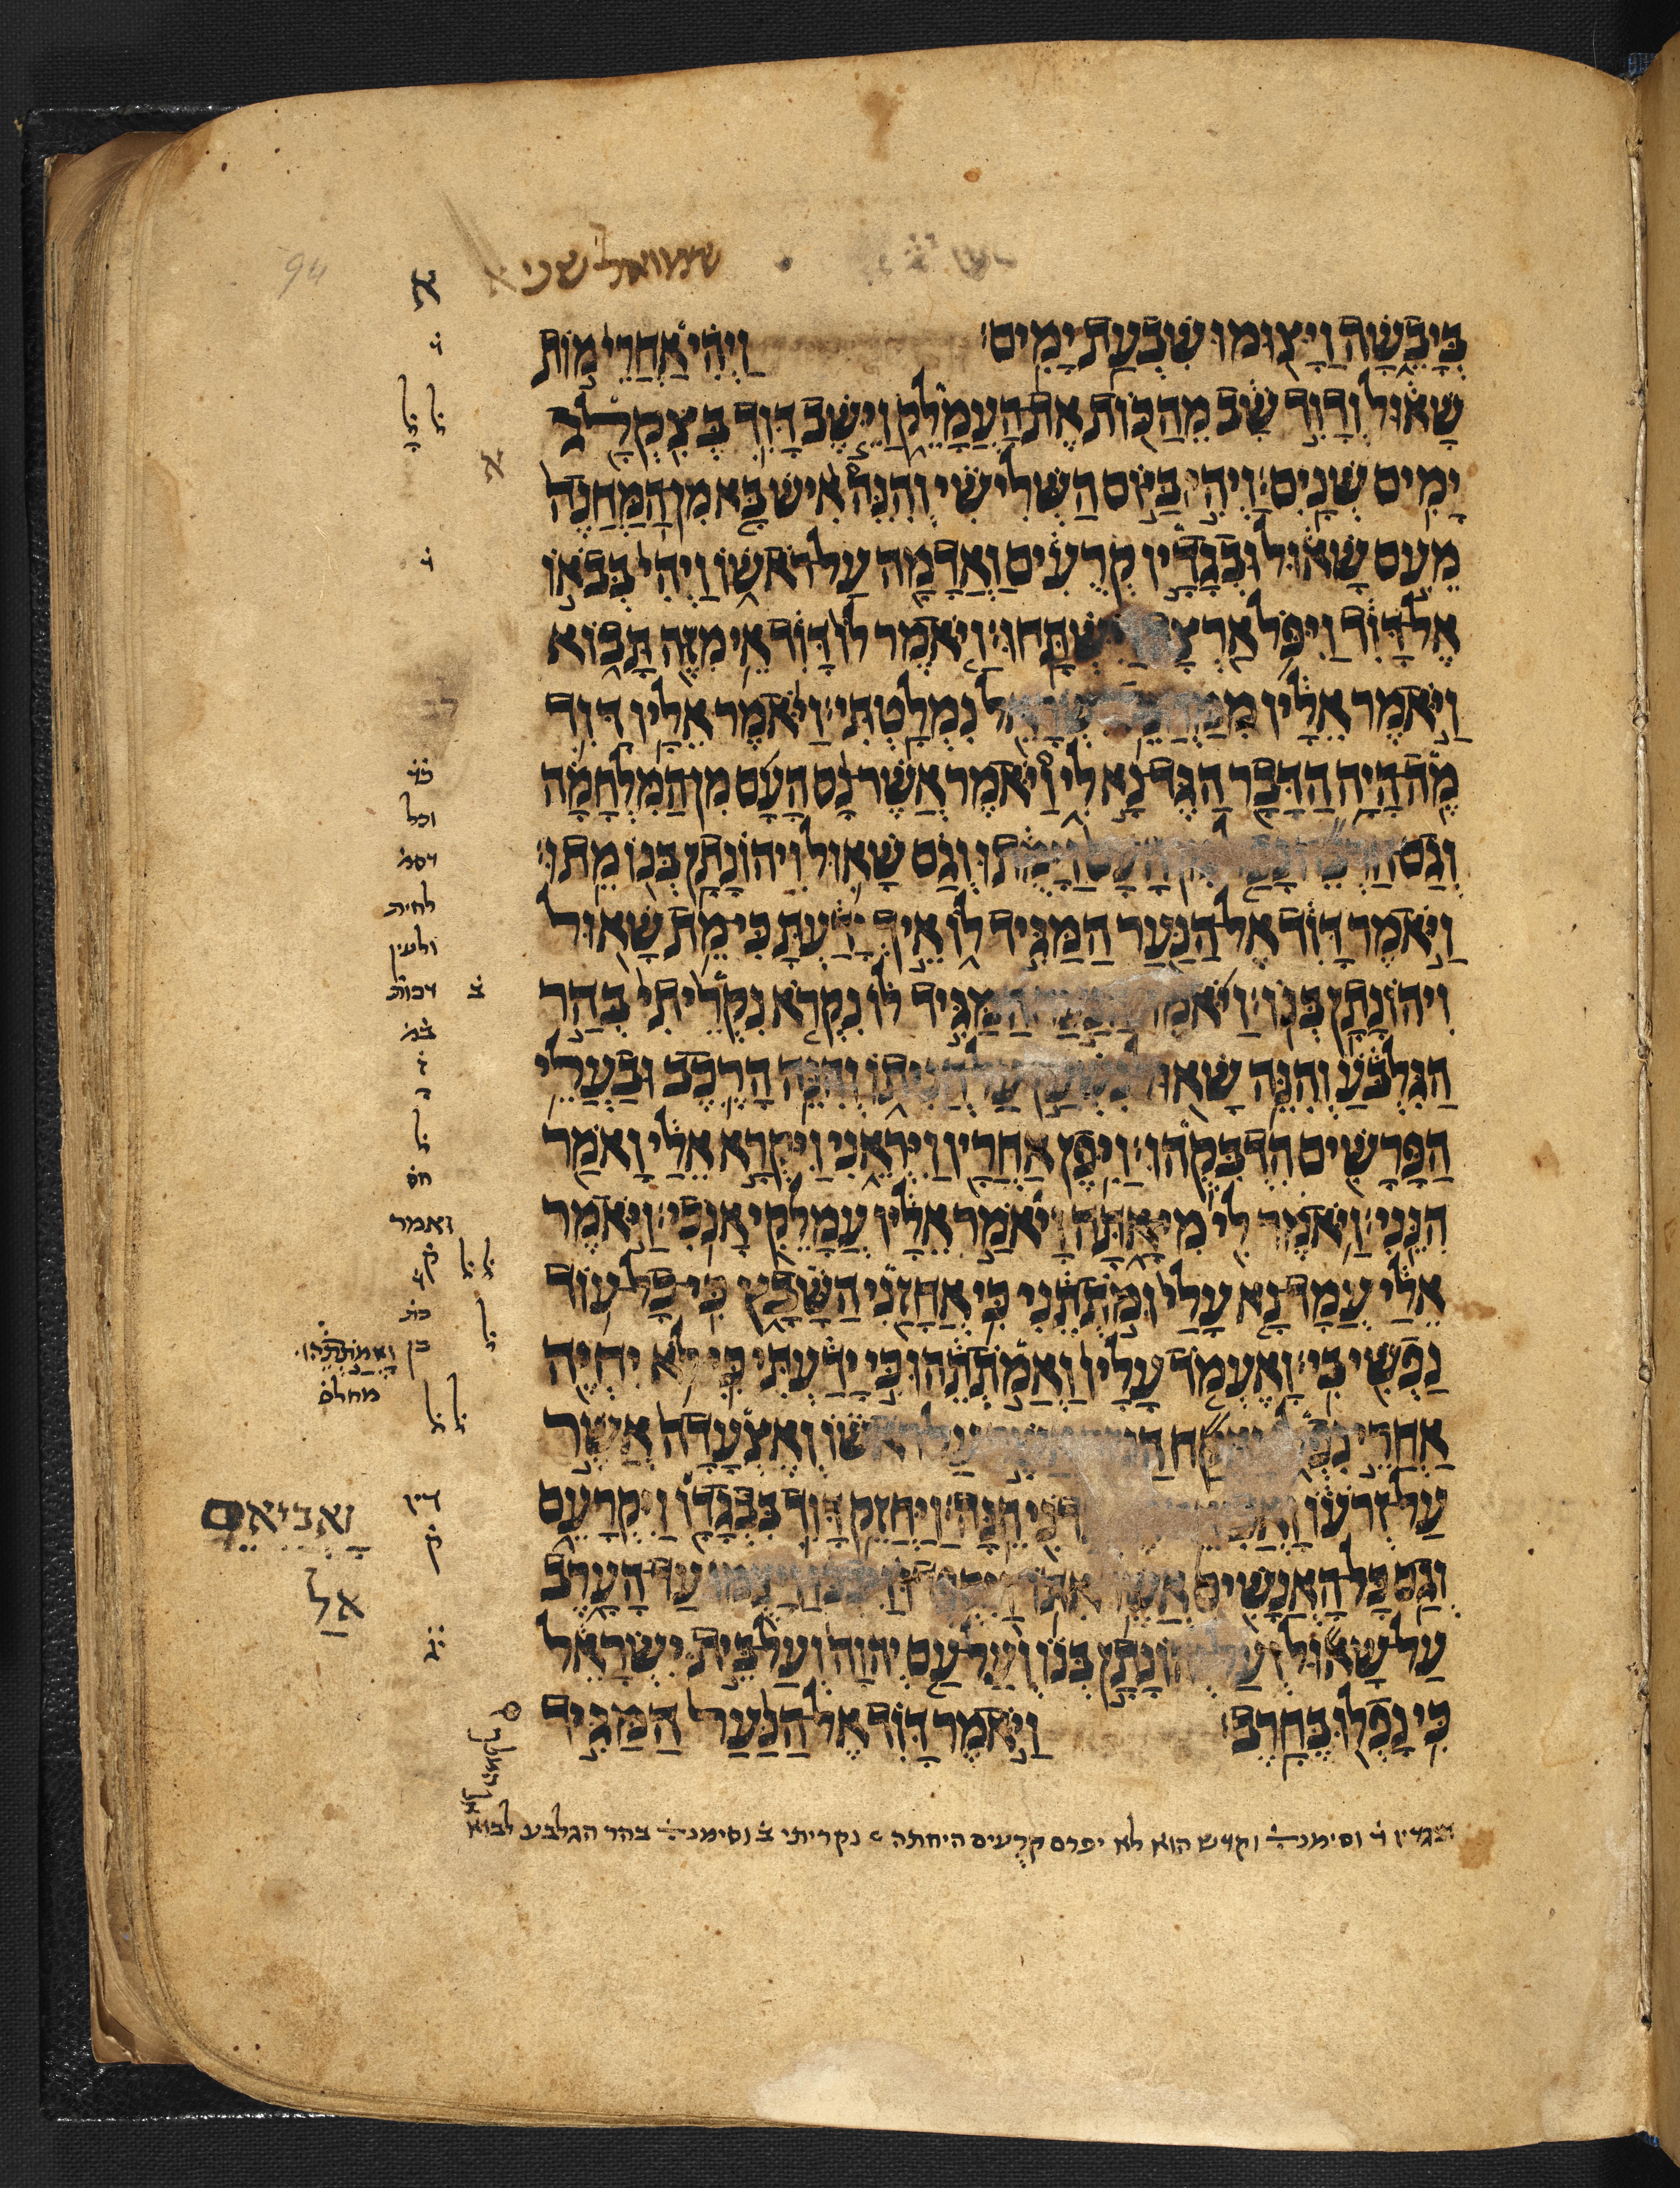 שמואל שני א
א
בְּיָבֵשָׁה וַיָּצוּמוּ שִׁבְעַת יָמִים׃ וַיְהִי אַחֲרֵי מוֹת
שָׁאוּל וְדָוִד שָׁב מֵהַכּוֹת אֶת הָעֲמָלֵק וַיֵּשֶׁב דָּוִד בְּצִקְלָג
יָמִים שְׁנָיִם׃ וַיְהִי בַּיּוֹם הַשְּׁלִישִׁי וְהִנֵּה אִישׁ בָּא מִן הַמַּחֲנֶה
מֵעִם שָׁאוּל וּבְגָדָיו קְרֻעִים וַאֲדָמָה עַל רֹאשׁוֹ וַיְהִי בְּבֹאוֹ
אֶל דָּוִד וַיִּפֹּל אַרְצָה וַיִּשְׁתָּחוּ׃ וַיֹּאמֶר לוֹ דָּוִד אֵי מִזֶּה תָּבוֹא
וַיֹּאמֶר אֵלָיו מִמַּחֲנֵה יִשְׂרָאֵל נִמְלָטְתִּי׃ וַיֹּאמֶר אֵלָיו דָּוִד
מֶה הָיָה הַדָּבָר הַגֶּד נָא לִי וַיֹּאמֶר אֲשֶׁר נָס הָעָם מִן הַמִּלְחָמָה
וְגַם הַרְבֵּה נָפַל מִן הָעָם וַיָּמֻתוּ וְגַם שָׁאוּל וִיהוֹנָתָן בְּנוֹ מֵתוּ׃
וַיֹּאמֶר דָּוִד אֶל הַנַּעַר הַמַּגִּיד לוֹ אֵיךְ יָדַעְתָּ כִּי מֵת שָׁאוּל
וִיהוֹנָתָן בְּנוֹ׃ וַיֹּאמֶר הַנַּעַר הַמַּגִּיד לוֹ נִקְרֹא נִקְרֵיתִי בְּהַר
הַגִּלְבֹּעַ וְהִנֵּה שָׁאוּל נִשְׁעָן עַל חֲנִיתוֹ וְהִנֵּה הָרֶכֶב וּבַעֲלֵי
הַפָּרָשִׁים הִדְבִּקֻהוּ׃ וַיִּפֶן אַחֲרָיו וַיִּרְאֵנִי וַיִּקְרָא אֵלָי וָאֹמַר
הִנֵּנִי׃ וַיֹּאמֶר לִי מִי אָתָּה וָיֹאמַר אֵלָיו עֲמָלֵקִי אָנֹכִי׃ וַיֹּאמֶר
אֵלַי עֲמָד נָא עָלַי וּמֹתְתֵנִי כִּי אֲחָזַנִי הַשָּׁבָץ כִּי כָל עוֹד
נַפְשִׁי בִּי׃ וָאֶעֱמֹד עָלָיו וַאֲמֹתְתֵהוּ כִּי יָדַעְתִּי כִּי לֹא יִחְיֶה
אַחֲרֵי נִפְלוֹ וָאֶקַּח הַנֵּזֶר אֲשֶׁר עַל רֹאשׁוֹ וְאֶצְעָדָה אֲשֶׁר
עַל זְרֹעוֹ וָאֲבִיאֵם אֶל אֲדֹנִי הֵנָּה׃ וַיַּחֲזֵק דָּוִד בִּבְגָדָו וַיִּקְרָעֵם
וְגַם כָּל הָאֲנָשִׁים אֲשֶׁר אִתּוֹ׃ וַיִּסְפְּדוּ וַיִּבְכּוּ וַיָּצֻמוּ עַד הָעָרֶב
עַל שָׁאוּל וְעַל יְהוֹנָתָן בְּנוֹ וְעַל עַם יְהוָה וְעַל בֵּית יִשְׂרָאֵל
כִּי נָפְלוּ בֶּחָרֶב׃ וַיֹּאמֶר דָּוִד אֶל הַנַּעַר הַמַּגִּיד
א
וכל
לחית
ולעין
ב
חס
ואמר
ק
מחלפ
דיו
ק
וָאֲבִיאֵם
אֶל
וסימנ וקדש הוא לא יפרם קרעים היחתה נקריתי ב וסימנ בהר הגלבע לבוא
94